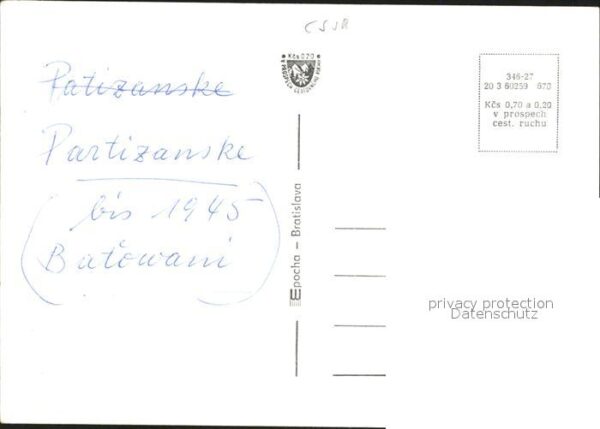 ČSSR
Kčs 0,20
V PROSPECH CESTOVNÉHO RUCHU
346-27
20 3 60259 670
Kčs 0,70 a 0,20
v prospech
cest. ruchu
Patizanske
Partizanske
(bis 1945
Baťowani)
Epocha – Bratislava
privacy protection
Datenschutz